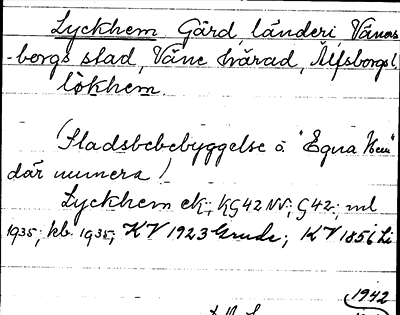 Lyckhem Gård, länderi Väners
-borgs stad, Väne härad, Älfsborgs l.
lökhem
(Stadsbebebyggelse å "Egna Hem"
där numera!
Lyckhem ek; KG42NV; G42; ml
1935; kb. 1935; KV 1923 Grude; KV 1856 Li
1942